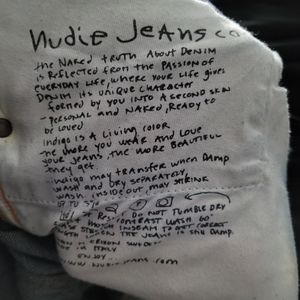 nudie Jeans co
the NAKED truth About DENIM
is Reflected from the PASSION of
EVERYDAY Life, where YOUR Life gives
DENIM its Unique Character
formed by you into A second skin
- personal and NAKED, READY to
be loved
Indigo is A Living color
the MORE you WEAR AND LOVE
your JEANS, the MORE BEAUTIFUL
they get
-indigo may transfer when Damp
WASH AND DRY SEPARATELY,
WASH inside out may SHRINK
Do NOT TUMBLE DRY
CONTRAST WASH 60°
INSEAM to GET CORRECT
the JEANS is still DAMP.
in ITALY
ENJOY
.com